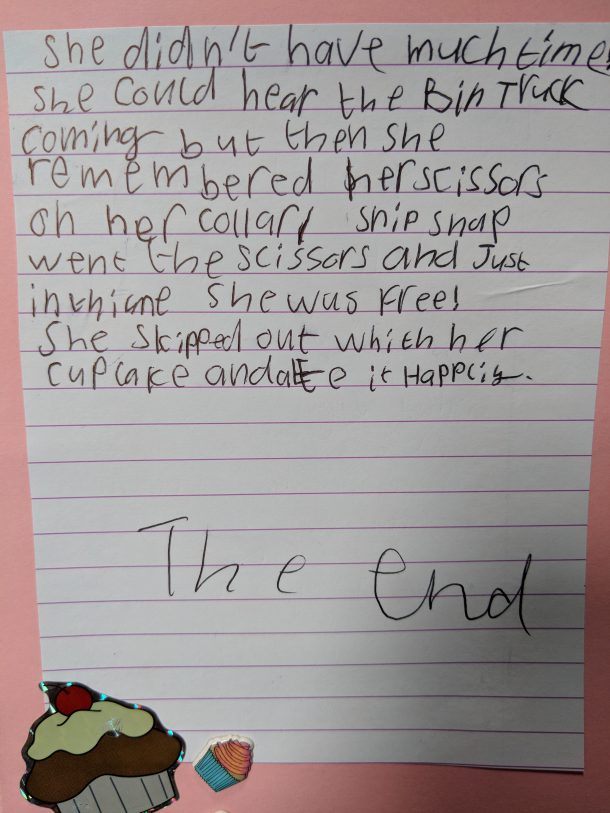 She didn't have much time!
She Could hear the Bin Truck
coming but then she
remembered her scissors
on her collar! snip snap
went the scissors and Just
inthime She was Free!
She Skipped out whith her
cupcake andate it Happliy.
The end